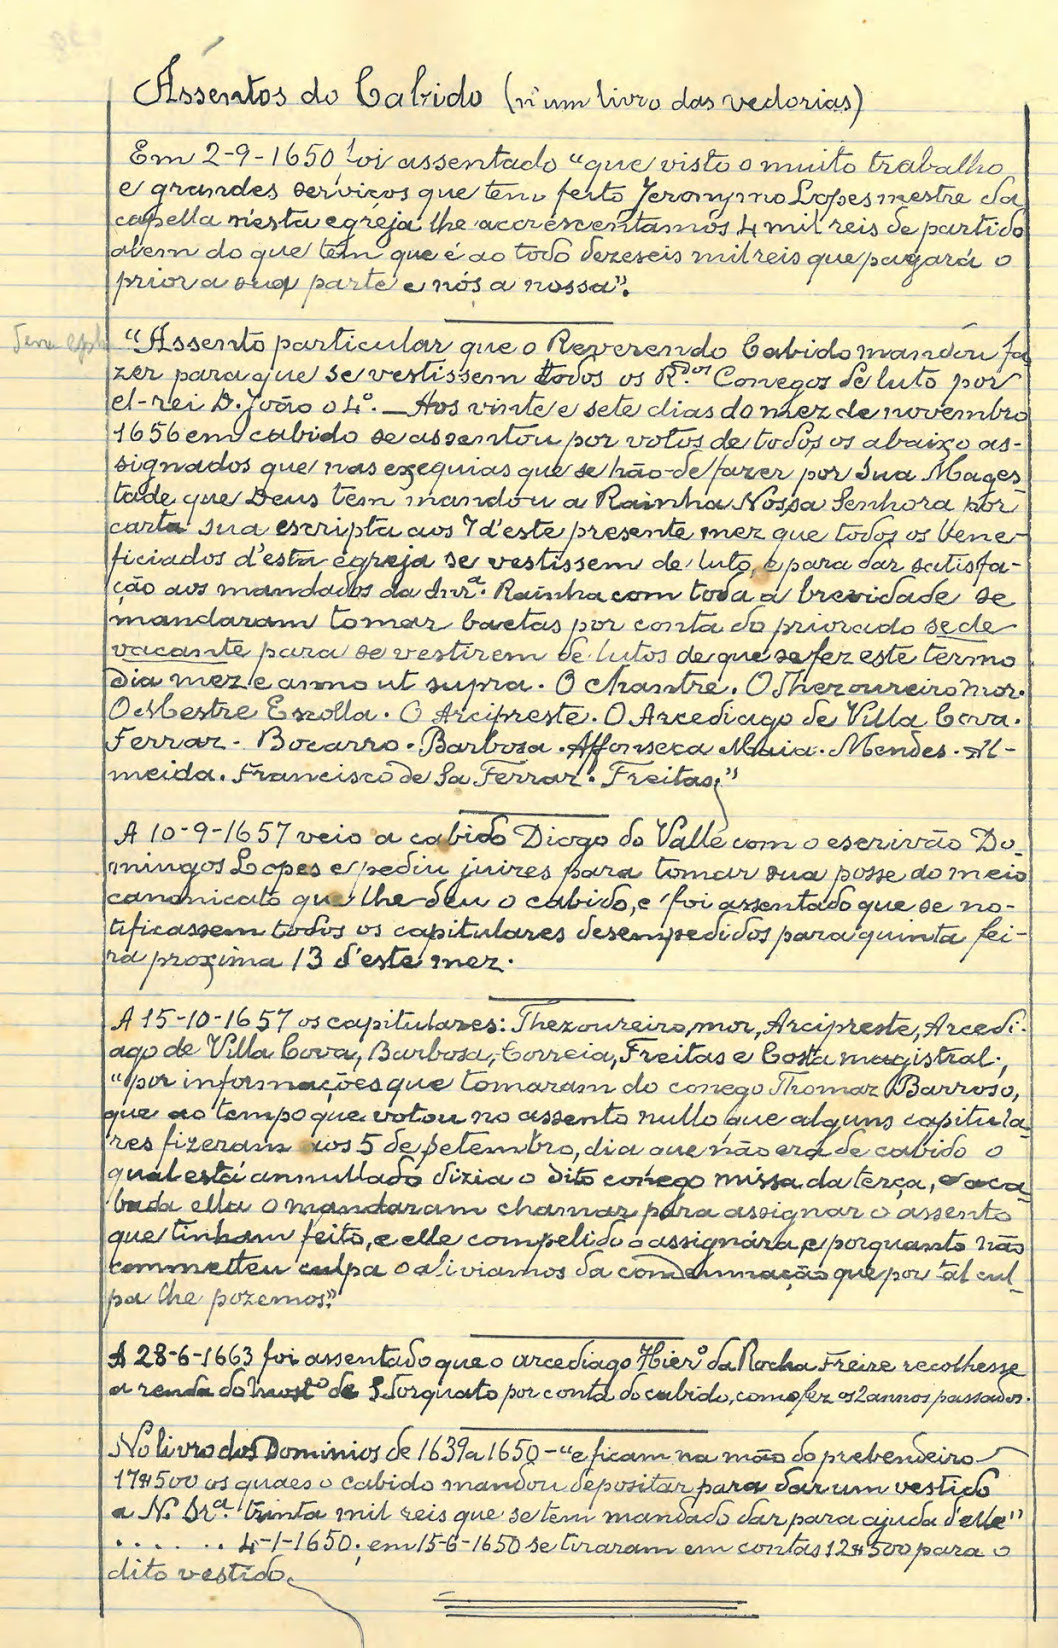 Assentos do Cabido (n'um livro das vedorias)
Em 2-9-1650 foi assentado "que visto o muito trabalho
e grandes serviços que tem feito Jeronymo Lopes mestre da
capella n'esta egreja lhe accrescentamos 4 mil reis de partido
alem do que tem que é ao todo dezeseis mil reis que pagará o
prior a sua parte e nós a nossa".
"Assento particular que o Reverendo Cabido mandou fa
zer para que se vestissem todos os R.dos Conegos de luto por
el-rei D. João o 4º. — Aos vinte e sete dias do mez de novembro
1656 em cabido se assentou por votos de todos os abaixo as-
signados que nas exequias que se hão-de fazer por Sua Mages
tade que Deus tem mandou a Rainha Nossa Senhora por
carta sua escripta aos 7 d'este presente mez que todos os bene-
ficiados d'esta egreja se vestissem de luto, e para dar satisfa-
ção aos mandados da Rainha com toda a brevidade se
mandaram tomar baetas por conta do priorado sede
vacante para se vestirem de lutos de que se fez este termo
dia mez e anno ut supra. O Chantre. O Thezoureiro mor.
O Mestre Escolla. O Arcipreste. O Arcediago de Villa Cova.
Ferraz. Bocarro. Barbosa. Affonseca Maia. Mendes. Al-
meida. Francisco de Sa Ferraz. Freitas."
A 10-9-1657 veio a cabido Diogo do Valle com o escrivão Do-
mingos Lopes e pediu juizes para tomar sua posse do meio
canonicato que lhe deu o cabido, e foi assentado que se no-
tificassem todos os capitulares desempedidos para quinta fei-
ra proxima 13 d'este mez.
A 15-10-1657 os capitulares: Thezoureiro, mor, Arcipreste, Arcedi-
ago de Villa Cova, Barbosa, Correia, Freitas e Costa magistral,
"por informações que tomaram do conego Thomaz Barroso,
que ao tempo que votou no assento nullo que alguns capitula-
res fizeram aos 5 de Setembro, dia que não era de cabido o
qual está annullado dizia o dito conego missa da terça, e aca
bada ella o mandaram chamar para assignar o assento
que tinham feito, e elle compelido o assignára, e porquanto não
commetteu culpa o aliviamos da condemnação que por tal cul-
pa lhe pozemos".
A 28-6-1663 foi assentado que o arcediago Hierº da Rocha Freire recolhesse
a renda do mostº de S. Torquato por conta do cabido, como fez os 2 annos passados.
No livro dos Dominios de 1639 a 1650 - "e ficam na mão do prebendeiro
17$500 os quaes o cabido mandou depositar para dar um vestido
a N. Srª. trinta mil reis que se tem mandado dar para ajuda d'elle"
. . . . . . 4-1-1650; em 15-6-1650 se tiraram em contas 12$500 para o
dito vestido.